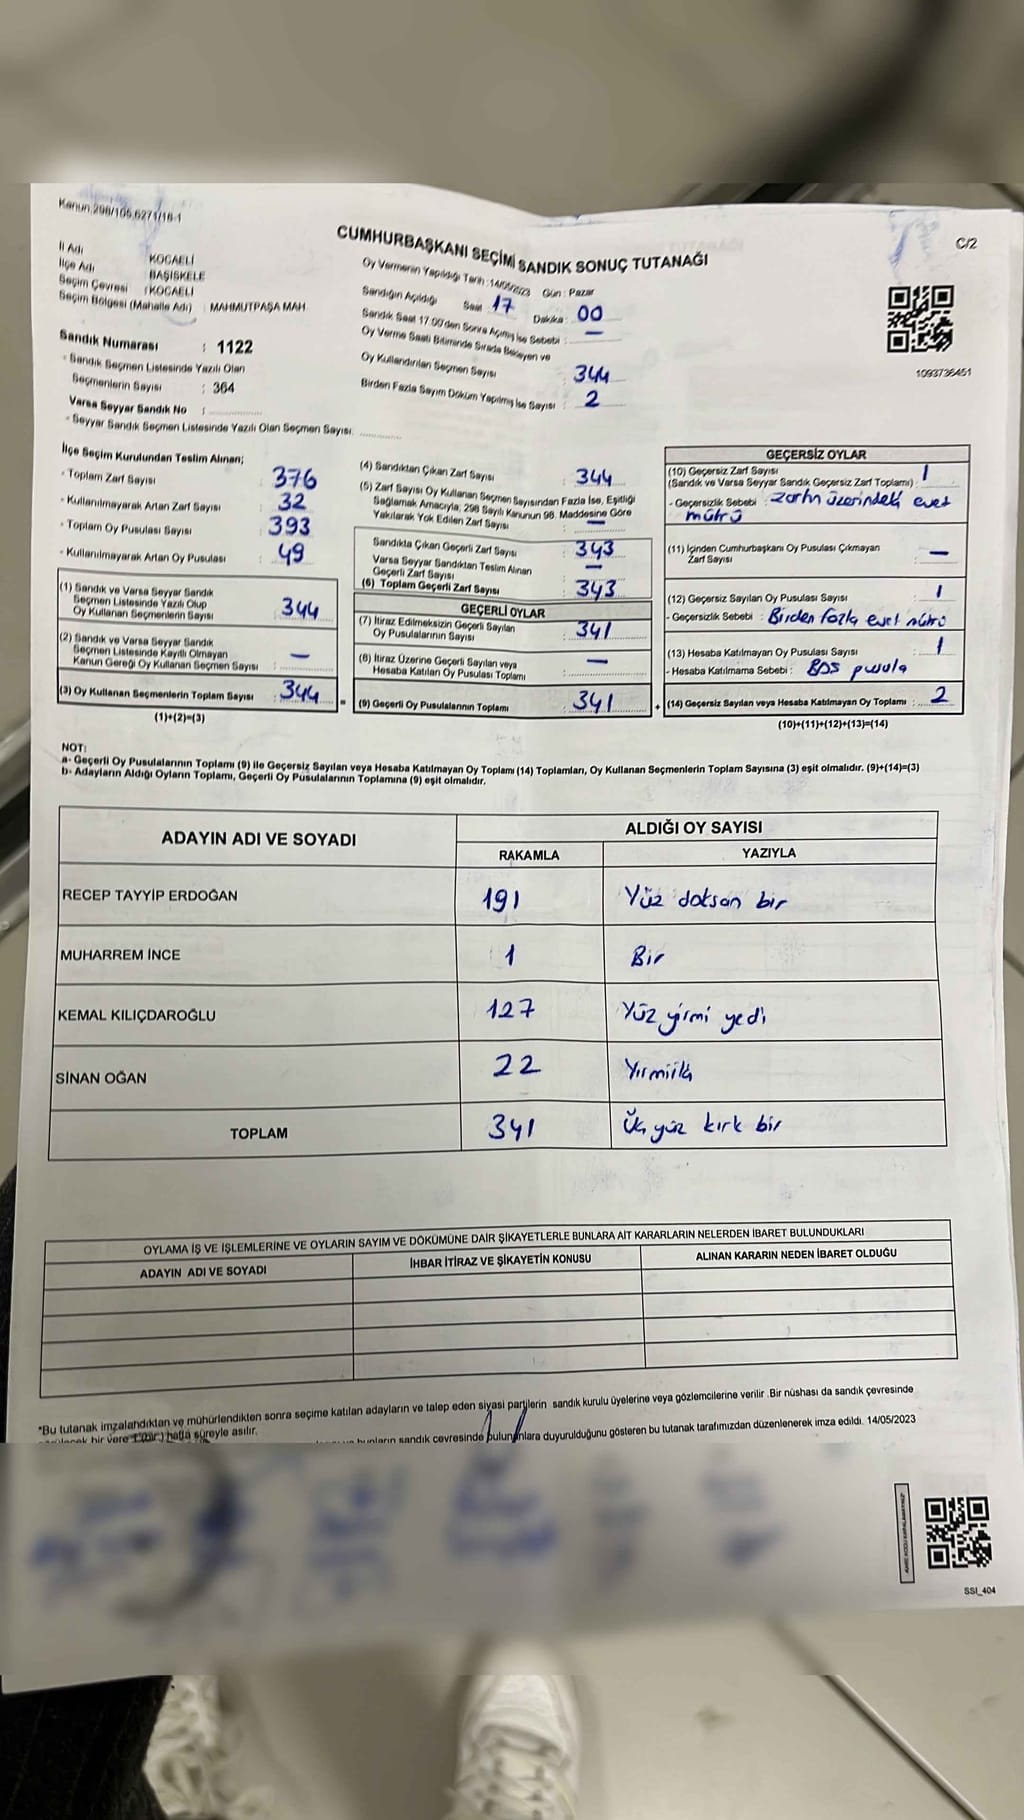 Kanun 298/105,6271/18-1
CUMHURBAŞKANI SEÇİMİ SANDIK SONUÇ TUTANAĞI
C/2
İl Adı KOCAELİ
İlçe Adı BAŞİSKELE
Seçim Çevresi : KOCAELİ
Seçim Bölgesi (Mahalle Adı) : MAHMUTPAŞA MAH.
Oy Vermenin Yapıldığı Tarih :14/05/2023 Gün : Pazar
Sandığın Açıldığı Saat 17 Dakika : 00
Sandık Saat 17:00'den Sonra Açılmış İse Sebebi : —
Oy Verme Saati Bitiminde Sırada Bekleyen ve
Oy Kullandırılan Seçmen Sayısı 344
Birden Fazla Sayım Döküm Yapılmış İse Sayısı : 2
1093736451
Sandık Numarası : 1122
- Sandık Seçmen Listesinde Yazılı Olan
Seçmenlerin Sayısı : 364
Varsa Seyyar Sandık No :
- Seyyar Sandık Seçmen Listesinde Yazılı Olan Seçmen Sayısı:
İlçe Seçim Kurulundan Teslim Alınan;
- Toplam Zarf Sayısı : 376
- Kullanılmayarak Artan Zarf Sayısı : 32
- Toplam Oy Pusulası Sayısı : 393
- Kullanılmayarak Artan Oy Pusulası : 49
(1) Sandık ve Varsa Seyyar Sandık
Seçmen Listesinde Yazılı Olup
Oy Kullanan Seçmenlerin Sayısı : 344
(2) Sandık ve Varsa Seyyar Sandık
Seçmen Listesinde Kayıtlı Olmayan
Kanun Gereği Oy Kullanan Seçmen Sayısı : —
(3) Oy Kullanan Seçmenlerin Toplam Sayısı : 344
(1)+(2)=(3)
(4) Sandıktan Çıkan Zarf Sayısı : 344
(5) Zarf Sayısı Oy Kullanan Seçmen Sayısından Fazla İse, Eşitliği
Sağlamak Amacıyla; 298 Sayılı Kanunun 98. Maddesine Göre
Yakılarak Yok Edilen Zarf Sayısı : —
Sandıkta Çıkan Geçerli Zarf Sayısı : 343
Varsa Seyyar Sandıktan Teslim Alınan
Geçerli Zarf Sayısı : —
(6) Toplam Geçerli Zarf Sayısı : 343
GEÇERLİ OYLAR
(7) İtiraz Edilmeksizin Geçerli Sayılan
Oy Pusulalarının Sayısı : 341
(8) İtiraz Üzerine Geçerli Sayılan veya
Hesaba Katılan Oy Pusulası Toplamı : —
= (9) Geçerli Oy Pusulalarının Toplamı : 341
GEÇERSİZ OYLAR
(10) Geçersiz Zarf Sayısı 1
(Sandık ve Varsa Seyyar Sandık Geçersiz Zarf Toplamı) :
- Geçersizlik Sebebi : zarfın üzerindeki evet
mührü
(11) İçinden Cumhurbaşkanı Oy Pusulası Çıkmayan
Zarf Sayısı : —
(12) Geçersiz Sayılan Oy Pusulası Sayısı : 1
- Geçersizlik Sebebi : Birden fazla evet mührü
(13) Hesaba Katılmayan Oy Pusulası Sayısı : 1
- Hesaba Katılmama Sebebi : BOŞ pusula
+ (14) Geçersiz Sayılan veya Hesaba Katılmayan Oy Toplamı : 2
(10)+(11)+(12)+(13)=(14)
NOT:
a- Geçerli Oy Pusulalarının Toplamı (9) ile Geçersiz Sayılan veya Hesaba Katılmayan Oy Toplamı (14) Toplamları, Oy Kullanan Seçmenlerin Toplam Sayısına (3) eşit olmalıdır. (9)+(14)=(3)
b- Adayların Aldığı Oyların Toplamı, Geçerli Oy Pusulalarının Toplamına (9) eşit olmalıdır.
ADAYIN ADI VE SOYADI
ALDIĞI OY SAYISI
RAKAMLA YAZIYLA
RECEP TAYYİP ERDOĞAN 191 Yüz doksan bir
MUHARREM İNCE 1 Bir
KEMAL KILIÇDAROĞLU 127 Yüz yirmi yedi
SİNAN OĞAN 22 Yirmiiki
TOPLAM 341 Üç yüz kırk bir
OYLAMA İŞ VE İŞLEMLERİNE VE OYLARIN SAYIM VE DÖKÜMÜNE DAİR ŞİKAYETLERLE BUNLARA AİT KARARLARIN NELERDEN İBARET BULUNDUKLARI
ADAYIN ADI VE SOYADI İHBAR İTİRAZ VE ŞİKAYETİN KONUSU ALINAN KARARIN NEDEN İBARET OLDUĞU
*Bu tutanak imzalandıktan ve mühürlendikten sonra seçime katılan adayların ve talep eden siyasi partilerin sandık kurulu üyelerine veya gözlemcilerine verilir .Bir nüshası da sandık çevresinde
bir yere 1 (bir) hafta süreyle asılır.
bunların sandık çevresinde bulunanlara duyurulduğunu gösteren bu tutanak tarafımızdan düzenlenerek imza edildi. 14/05/2023
SSI_404